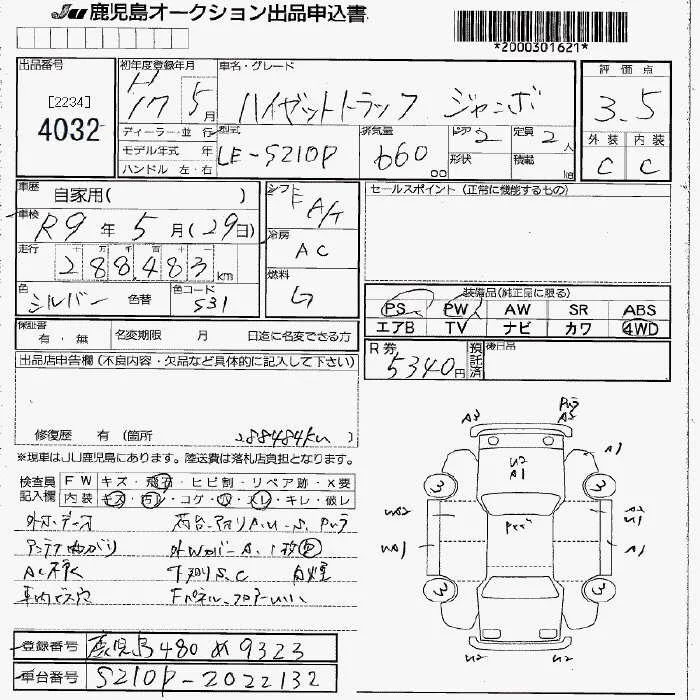 JU 鹿児島オークション出品申込書
*2000301621*
出品番号
[2234]
4032
初年度登録年月
H17 5月
ディーラー・並 行
モデル年式 年
ハンドル 左・右
車名・グレード
ハイゼットトラック ジャンボ
型式
LE-S210P
排気量
660 cc
ドア 2
形状
定員 2人
積載 kg
評価点
3.5
外装 内装
C C
車歴 自家用( )
車検 R9年5月(29日)
走行 十 万 千 百 十 一
288,483km
色 シルバー 色替
色コード S31
シフト
F A/T
冷房
AC
燃料
セールスポイント (正常に機能するもの)
装備品(純正品に限る)
PS PW AW SR ABS
エアB TV ナビ カワ 4WD
保証書
有・無
名変期限 月 日迄に名変できる方
R券
5340円
預託済
後日品
出品店申告欄 (不良内容・欠品など具体的に記入して下さい)
修復歴 有 (箇所
288484km
※現車はJU鹿児島にあります。陸送費は落札店負担となります。
検査員記入欄
FW キズ・飛石・ヒビ割・リペア跡・X要
内装 キズ・汚レ・コゲ・穴・スレ・キレ・破レ
アンテナ曲がり
下廻りS.C
A3
A3
A1
U2
A1
3
3
UA2
UA1
A2
U1
A1
3
3
U2
U2
登録番号 鹿児島480 め 9323
車台番号 S210P-2022132